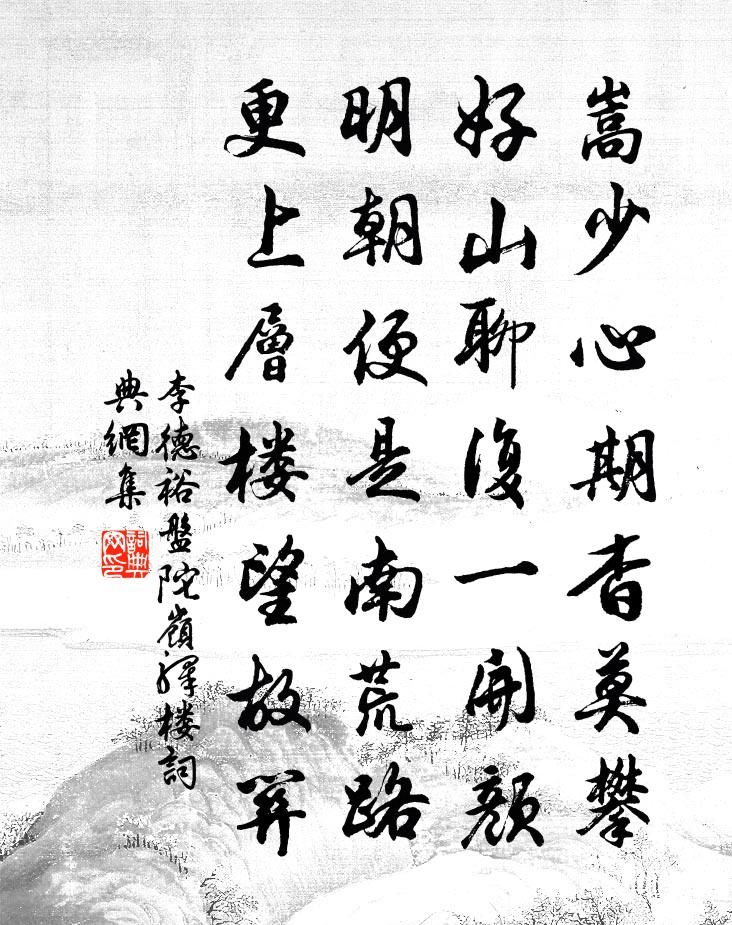 嵩少心期杳莫攀
好山聊復一開顏
明朝便是南荒路
更上層楼望故關
李德裕盤陀嶺驛楼詞
典網集
詞典
网印